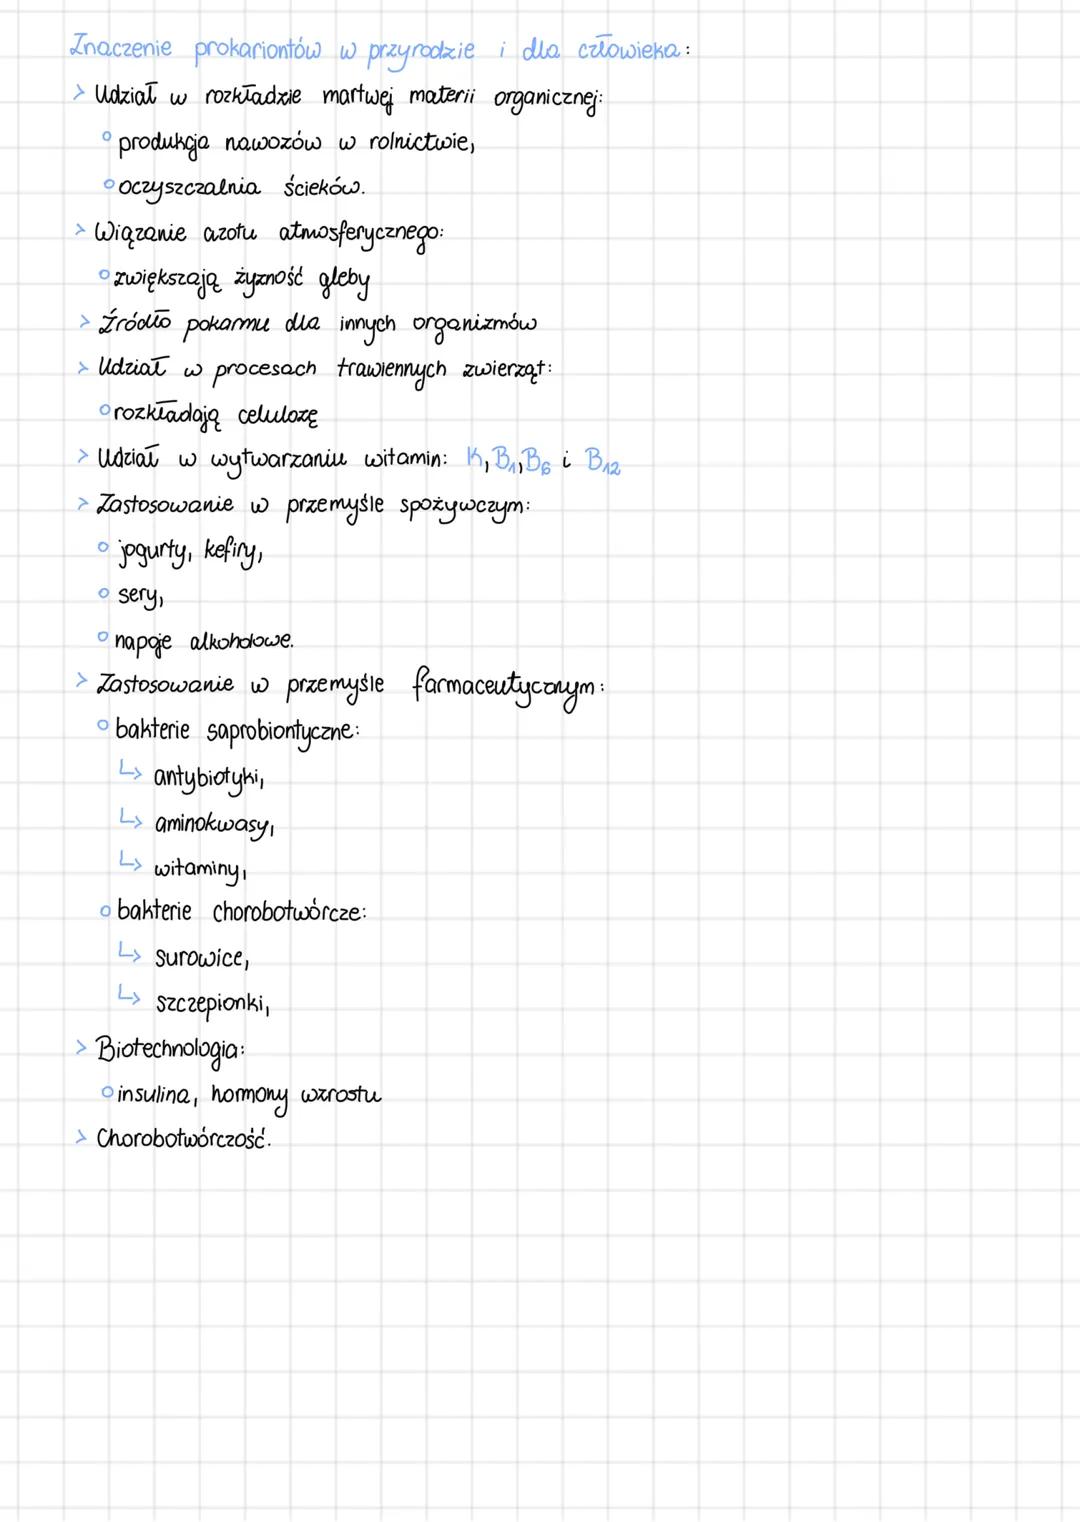 Znaczenie prokariontów w przyrodzie i dla człowieka:
> Udział w rozkładzie martwej materii organicznej:
° produkcja nawozów w rolnictwie,
° oczyszczalnia ścieków.
> Wiązanie azotu atmosferycznego:
° zwiększają żyzność gleby
> Źródło pokarmu dla innych organizmów
> Udział w procesach trawiennych zwierząt:
° rozkładają celulozę
> Udział w wytwarzaniu witamin: K, B₁, B₆ i B₁₂
> Zastosowanie w przemyśle spożywczym:
° jogurty, kefiry,
° sery,
° napoje alkoholowe.
> Zastosowanie w przemyśle farmaceutycznym:
° bakterie saprobiontyczne:
↳ antybiotyki,
↳ aminokwasy,
↳ witaminy,
° bakterie chorobotwórcze:
↳ surowice,
↳ szczepionki,
> Biotechnologia:
° insulina, hormony wzrostu
> Chorobotwórczość.